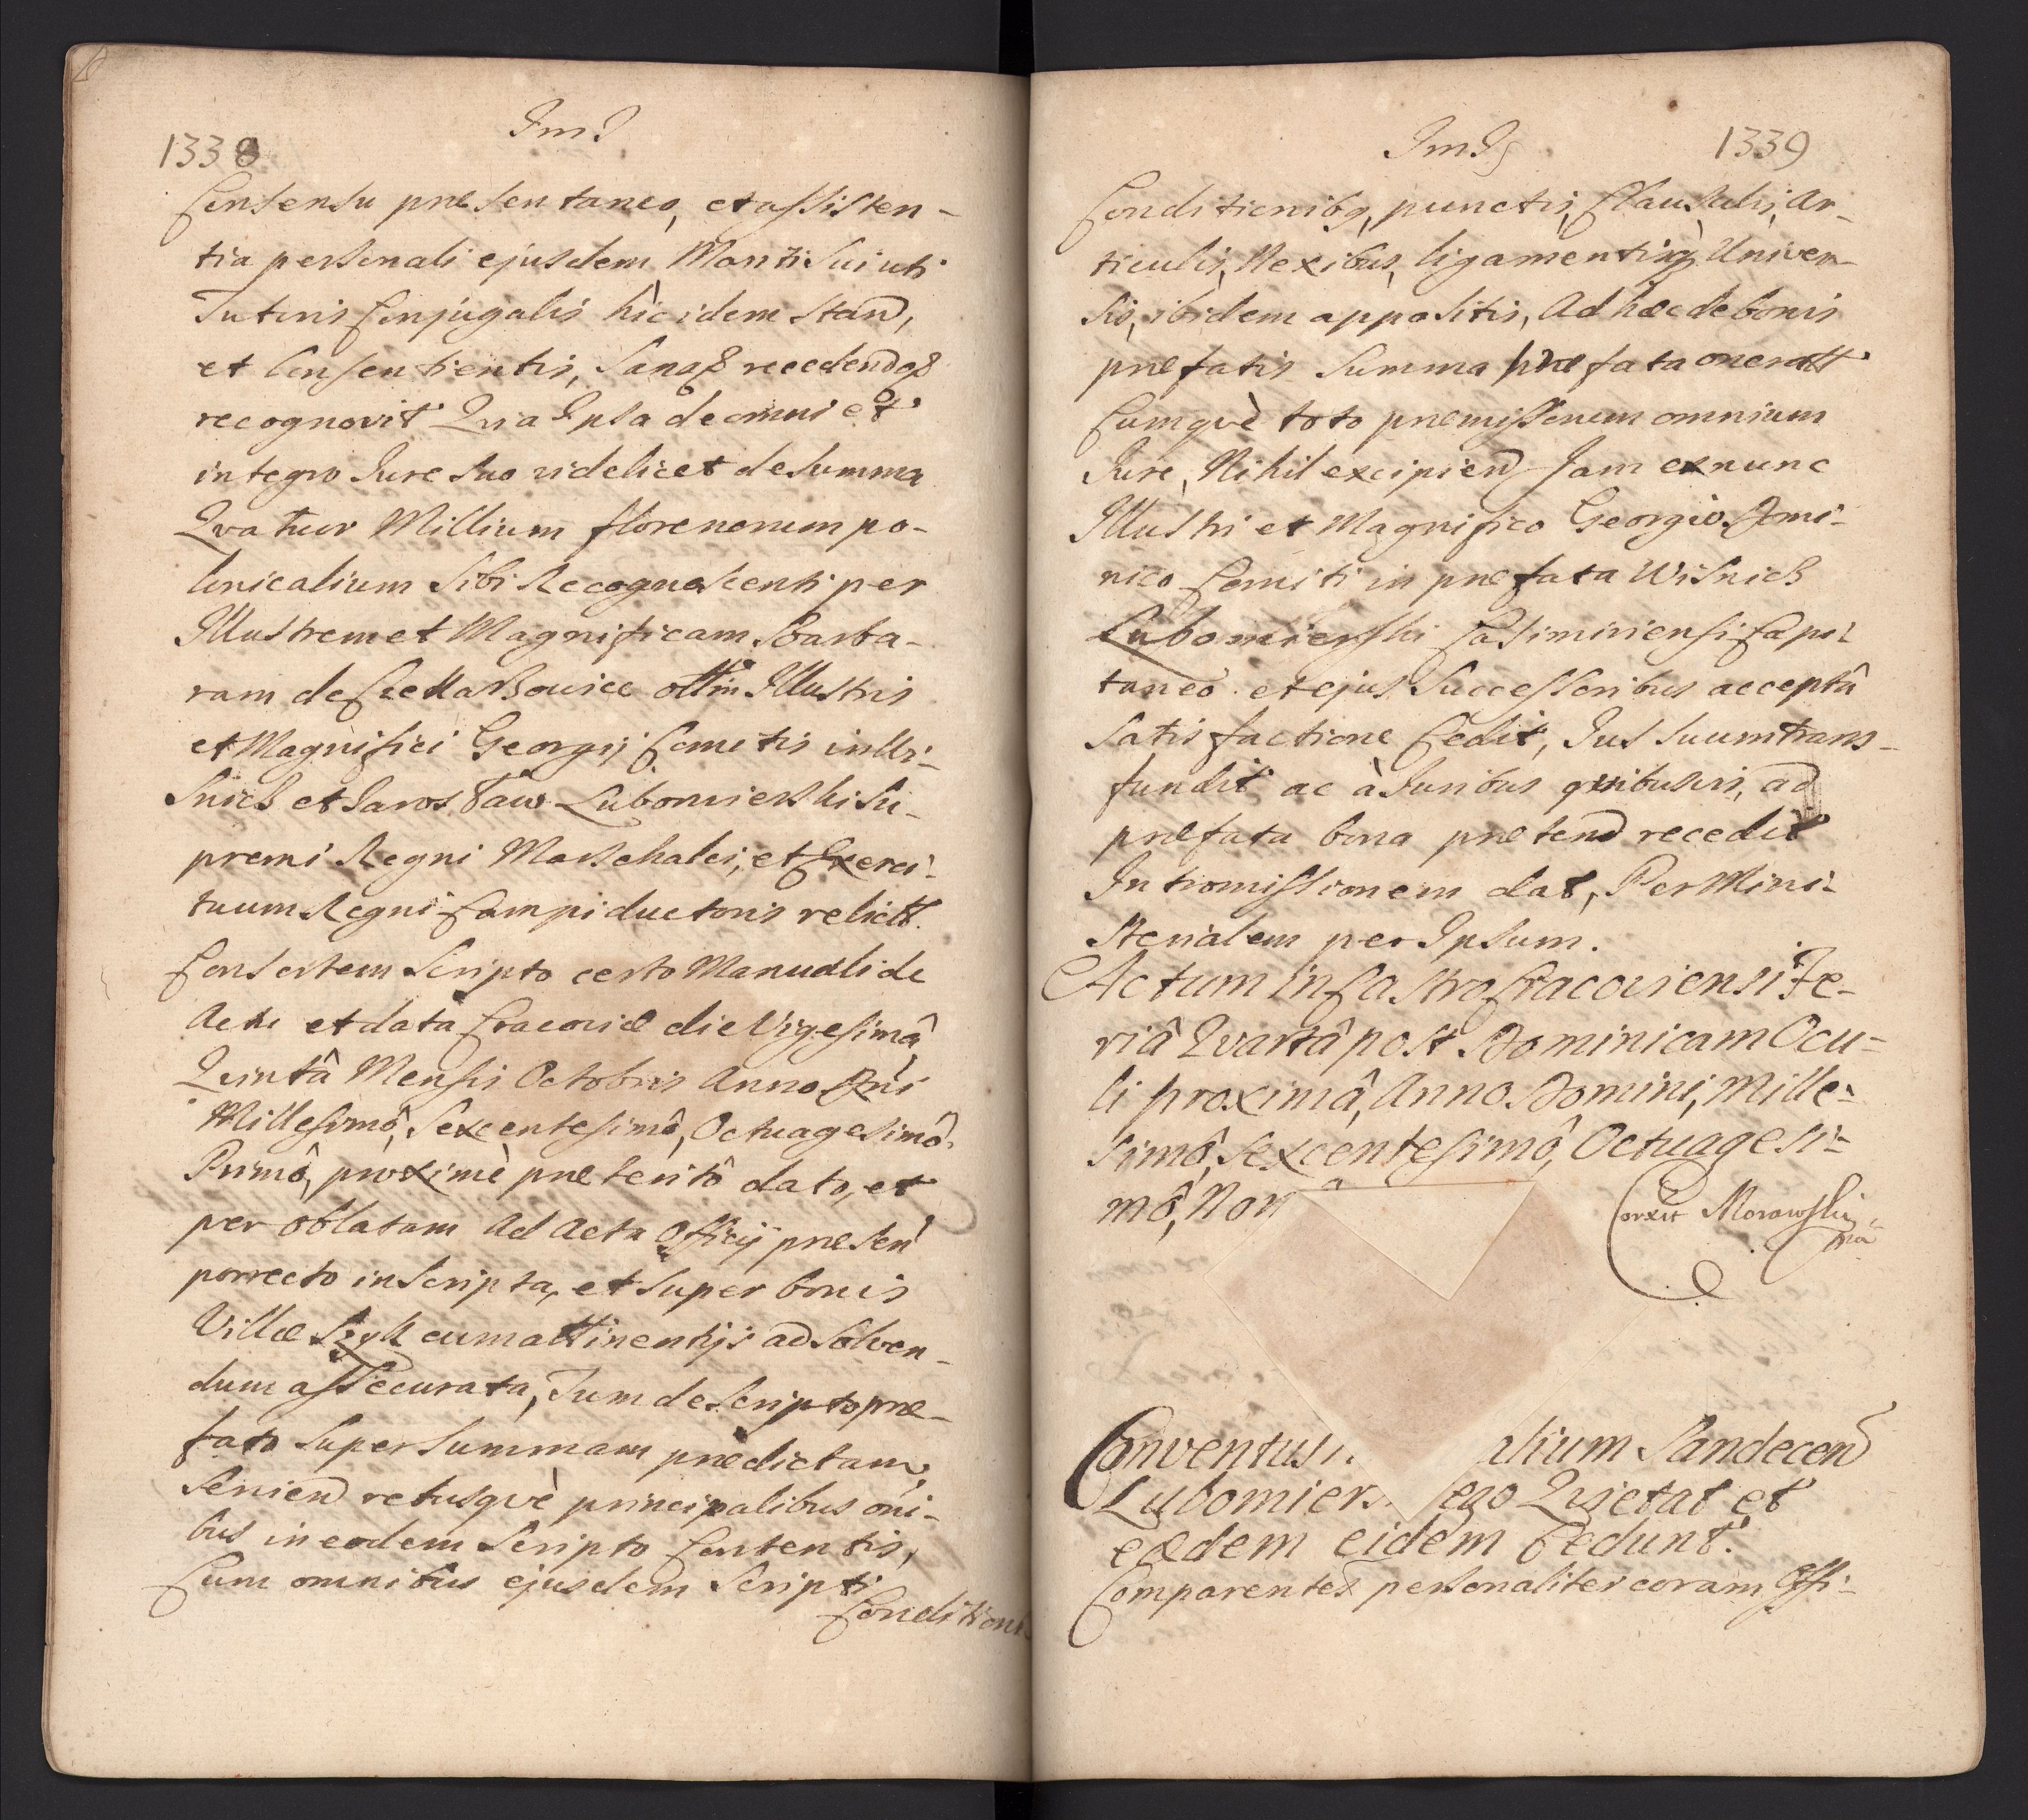 1338
Consensu præsentaneo, et assisten-
tia personali ejusdem Mariti Sui uti
Tutoris Conjugalis hic idem stan,
et Consentientis, Sanaqz recedendoqz
recognovit Quia Ipsa de omni et
integro Jure Suo videlicet de Summa
Qvatuor Millium florenorum po-
lonicalium Sibi Recognoscenti per
Illustrem et Magnificam Barba-
ram de olim Illustris
et Magnifici Georgij Comitis in Wi-
snicz et Jarosław Lubomierski Su-
premi Regni Marschalci, et Exerci-
tuum Regni Campiductoris relictt.
Consortem Scripto certo Manuali de
Actu et data Cracoviæ die Vigesimâ
Quintâ Mensis Octobris Anno Dni
Millesimô, Sexcentesimô, Octuagesimô
Primô, proximè præteritô dato, et
per oblatam Ad Acta Officij præsen
porrecto inscripta, et super bonis
Villæ Szyk cum attinentijs ad solven-
dum assecurata, Tum de Scripto præ-
fato super Summam prædictam,
servien retusqvè principalibus oni-
bus in eodem Scripto Contentis,
Cum omnibus ejusdem Scripti
Conditioni
1339
Conditionibq, punctis, Clausulis, Ar-
ticulis, Nexibus, ligamentisq Univer-
sis, ibidem appositis, Ad hæc de bonis
præfatis Summa præfata oneratt
Cumqvè toto præmissorum omnium
Jure, Nihil excipien Jam exnunc
Illustri et Magnifico Georgio Domi-
nico Comiti in præfata Wisnicz
Lubomierski Casimiriensi Capi-
taneo et ejus Successoribus acceptâ
Satisfactione Cedit, Jus suum trans-
fundit ac à Juribus quibusvis, ad
præfata bona præten recedit
Intromissionem dat, Per Mini-
sterialem per Ipsum.
Actum in Castro Cracoviensi Fe-
riâ Qvartâ post Dominicam Ocu-
li proximâ, Anno Domini, Mille-
simô, Sexcentesimô, Octuagesi-
mô, Non
Correxit Morawski
mp
Conventus alium Sandecen
Lubomiers ego Qvietat et
eædem eidem Cedunt.
Comparentes personaliter coram Offi-